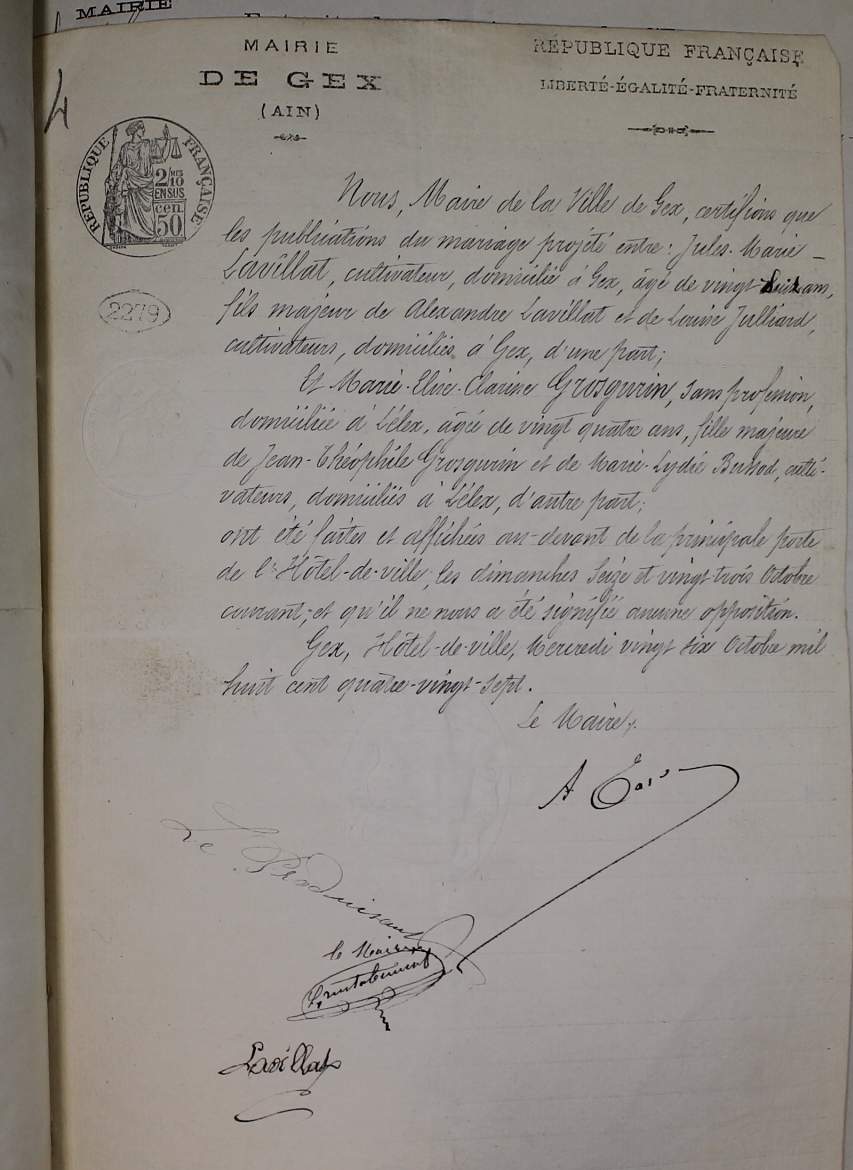 MAIRIE
MAIRIE
DE GEX
(AIN)
RÉPUBLIQUE FRANÇAISE
LIBERTÉ-ÉGALITÉ-FRATERNITÉ
4
RÉPUBLIQUE FRANÇAISE
2/10
EN SUS
50
cen
2279
Nous, Maire de la Ville de Gex, certifions que
les publications du mariage projeté entre: Jules-Marie-
Lavillat, cultivateur, domicilié à Gex, âgé de vingt-huit ans,
fils majeur de Alexandre Lavillat et de Louise Julliard,
cultivateurs, domiciliés à Gex, d'une part;
Et Marie-Elise-Clarisse Grosgurin, sans profession,
domiciliée à Lélex, âgée de vingt quatre ans, fille majeure
de Jean-Théophile Grosgurin et de Marie Lydie Bussod, culti-
vateurs, domiciliés à Lélex, d'autre part;
ont été faites et affichées au-devant de la principale porte
de l'Hôtel-de-ville, les dimanches seize et vingt trois Octobre
courant, et qu'il ne nous a été signifié aucune opposition.
Gex, Hôtel-de-ville, Mercredi vingt six Octobre mil
huit cent quatre-vingt-sept.
Le Maire,
A
Le Produisant
le Maire
Lavillat